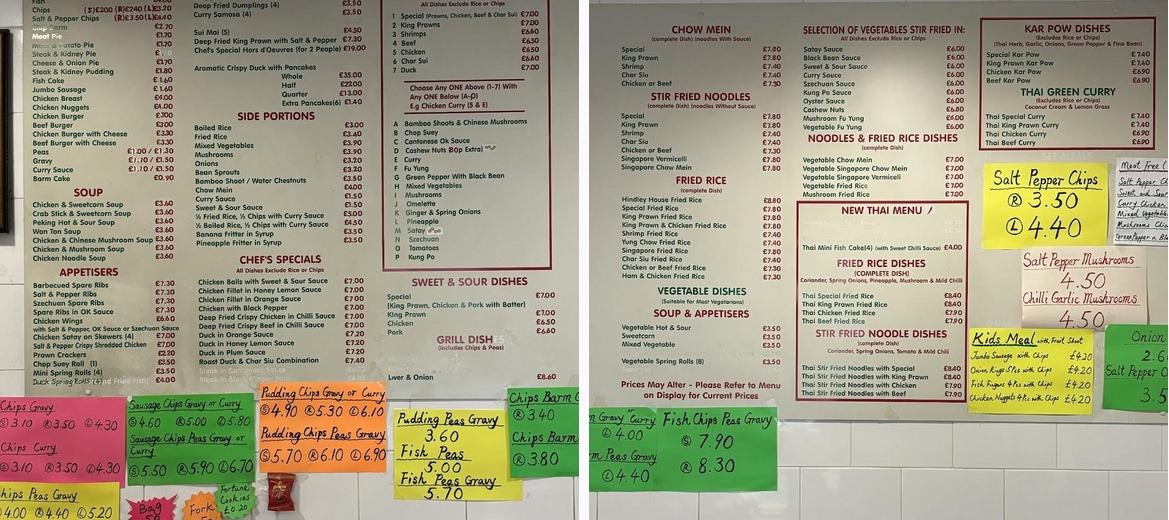 Fish
Chips (S)£200 (R)£240 (L)£3.20
Salt Pepper Chips (R)£3.50 (L)£4.40
Chip Barm £2.70
Meat Pie
Meat & Potato Pie £1.70
Steak & Kidney Pie
Cheese & Onion Pie £1.70
Steak & Kidney Pudding £1.80
Fish Cake £1.60
Jumbo Sausage £1.60
Chicken Breast £4.00
Chicken Nuggets £4.00
Chicken Burger £300
Beef Burger £3.00
Chicken Burger with Cheese £3.30
Beef Burger with Cheese £3.30
Peas £1.00 / £1.30
Gravy £1.10 / £1.50
Curry Sauce £1.10 / £1.50
Barm Cake £0.90
SOUP
Chicken & Sweetcorn Soup £3.60
Crab Stick & Sweetcorn Soup £3.60
Peking Hot & Sour Soup £3.60
Won Ton Soup £3.60
Chicken & Chinese Mushroom Soup £3.60
Chicken & Mushroom Soup £3.60
Chicken Noodle Soup £3.60
APPETISERS
Barbecued Spare Ribs £7.30
Salt & Pepper Ribs £7.30
Szechuan Spare Ribs £7.30
Spare Ribs in OK Sauce £7.30
Chicken Wings £6.60
with Salt & Pepper, OK Sauce or Szechuan Sauce
Chicken Satay on Skewers (4) £7.30
Salt & Pepper Crispy Shredded Chicken £7.00
Prawn Crackers £2.20
Chop Suey Roll (1) £3.50
Mini Spring Rolls (4) £3.50
Duck Spring Rolls £4.00
Deep Fried Dumplings (4) £3.50
Curry Samosa (4) £3.50
Sui Mai (5) £4.50
Deep Fried King Prawn with Salt & Pepper £7.30
Chef's Special Hors d'Oeuvres (for 2 People) £19.00
Aromatic Crispy Duck with Pancake
Whole £35.00
Half £22.00
Quarter £13.00
Extra Pancakes(6) £1.40
SIDE PORTIONS
Boiled Rice £3.00
Fried Rice £3.40
Mixed Vegetables £3.90
Mushrooms £3.90
Onions £3.20
Bean Sprouts £3.20
Bamboo Shoot / Water Chestnuts £3.50
Chow Mein £4.00
Curry Sauce £1.50
Sweet & Sour Sauce £1.50
½ Fried Rice, ½ Chips with Curry Sauce £5.00
½ Boiled Rice, ½ Chips with Curry Sauce £4.50
Banana Fritter in Syrup £3.50
Pineapple Fritter in Syrup £3.50
CHEF'S SPECIALS
All Dishes Exclude Rice or Chips
Chicken Balls with Sweet & Sour Sauce £7.00
Chicken Fillet in Honey Lemon Sauce £7.00
Chicken Fillet in Orange Sauce £7.00
Chicken with Black Pepper £7.00
Deep Fried Crispy Chicken in Chilli Sauce £7.00
Deep Fried Crispy Beef in Chilli Sauce £7.00
Duck in Orange Sauce £7.20
Duck in Honey Lemon Sauce £7.20
Duck in Plum Sauce £7.20
Roast Duck & Char Siu Combination £7.40
All Dishes Exclude Rice or Chips
1 Special (Prawns, Chicken, Beef & Char Sui) £7.00
2 King Prawns £7.00
3 Shrimps £6.60
4 Beef £6.50
5 Chicken £6.50
6 Char Sui £6.60
7 Duck £7.00
Choose Any ONE Above (1-7) With
Any ONE Below (A-P)
E.g Chicken Curry (5 & E)
A Bamboo Shoots & Chinese Mushrooms
B Chop Suey
C Cantonese Ok Sauce
D Cashew Nuts 80p Extra)
E Curry
F Fu Yung
G Green Pepper With Black Bean
H Mixed Vegetables
I Mushrooms
J Omelette
K Ginger & Spring Onions
L Pineapple
M Satay
N Szechuan
O Tomatoes
P Kung Po
SWEET & SOUR DISHES
Special £7.00
(King Prawn, Chicken & Pork with Batter)
King Prawn £7.00
Chicken £6.50
Pork £6.60
GRILL DISHES
(Includes Chips & Peas)
Liver & Onion £8.60
Chips Gravy
Ⓢ3.10 Ⓡ3.50 Ⓛ4.30
Chips Curry
Ⓢ3.10 Ⓡ3.50 Ⓛ4.30
Chips Peas Gravy
Ⓢ4.00 Ⓡ4.40 Ⓛ5.20
Sausage Chips Gravy or Curry
Ⓢ4.60 Ⓡ5.00 Ⓛ5.80
Sausage Chips Peas Gravy or Curry
Ⓢ5.50 Ⓡ5.90 Ⓛ6.70
Pudding Chips Gravy or Curry
Ⓢ4.90 Ⓡ5.30 Ⓛ6.10
Pudding Chips Peas Gravy
Ⓢ5.70 Ⓡ6.10 Ⓛ6.90
Pudding Peas Gravy
3.60
Fish Peas
5.00
Fish Peas Gravy
5.70
Chips Barm G
Ⓡ3.40
Chips Barm
Ⓡ3.80
Bag
Fork
Fortune
Cookies
£0.20
CHOW MEIN
(complete Dish) (noodles With Sauce)
Special £7.80
King Prawn £7.80
Shrimp £7.40
Char Siu £7.40
Chicken or Beef £7.30
STIR FRIED NOODLES
(complete Dish) (noodles Without Sauce)
Special £7.80
King Prawn £7.80
Shrimp £7.40
Char Siu £7.40
Chicken or Beef £7.30
Singapore Vermicelli £7.80
Singapore Chow Mein £7.80
FRIED RICE
(complete Dish)
Hindley House Fried Rice £8.80
Special Fried Rice £7.80
King Prawn Fried Rice £7.80
King Prawn & Chicken Fried Rice £7.80
Shrimp Fried Rice £7.30
Yung Chow Fried Rice £7.30
Singapore Fried Rice £7.30
Char Siu Fried Rice £7.30
Chicken or Beef Fried Rice £7.30
Ham & Chicken Fried Rice £7.30
VEGETABLE DISHES
(Suitable for Most Vegetarians)
SOUP & APPETISERS
Vegetable Hot & Sour £3.50
Sweetcorn £3.50
Mixed Vegetable £3.50
Vegetable Spring Rolls (8) £3.50
Prices May Alter - Please Refer to Menu
on Display for Current Prices
SELECTION OF VEGETABLES STIR FRIED IN:
All Dishes Exclude Rice or Chips
Satay Sauce £6.00
Black Bean Sauce £6.00
Sweet & Sour Sauce £6.00
Curry Sauce £6.00
Szechuan Sauce £6.00
Kung Po Sauce £6.00
Oyster Sauce £6.00
Cashew Nuts £6.00
Mushroom Fu Yung £6.00
Vegetable Fu Yung £6.00
NOODLES & FRIED RICE DISHES
(complete Dish)
Vegetable Chow Mein £7.00
Vegetable Singapore Chow Mein £7.00
Vegetable Singapore Vermicelli £7.00
Vegetable Fried Rice £7.00
Mushroom Fried Rice £7.00
NEW THAI MENU
Thai Mini Fish Cake(4) (with Sweet Chilli Sauce) £4.00
FRIED RICE DISHES
(COMPLETE DISH)
Coriander, Spring Onions, Pineapple, Mushroom & Mild Chilli
Thai Special Fried Rice £8.40
Thai King Prawn Fried Rice £8.40
Thai Chicken Fried Rice £7.90
Thai Beef Fried Rice £7.90
STIR FRIED NOODLE DISHES
(COMPLETE DISH)
Coriander, Spring Onions, Tomato & Mild Chili
Thai Stir Fried Noodles with Special £8.40
Thai Stir Fried Noodles with King Prawn £8.40
Thai Stir Fried Noodles with Chicken £7.90
Thai Stir Fried Noodles with Beef £7.90
KAR POW DISHES
(Excludes Rice or Chips)
(Thai Herb, Garlic, Onions, Green Pepper & Fine Bean)
Special Kar Pow £7.40
King Prawn Kar Pow £7.40
Chicken Kar Pow £6.90
Beef Kar Pow £6.90
THAI GREEN CURRY
(Excludes Rice or Chips)
Coconut Cream & Lemon Grass
Thai Special Curry £7.40
Thai King Prawn Curry £7.40
Thai Chicken Curry £6.90
Thai Beef Curry £6.90
Salt Pepper Chips
Ⓡ 3.50
Ⓛ 4.40
Meat Free
Salt Pepper
Sweet and Sour
Curry Chicken
Mixed Vegetable
Mushrooms
Green Pepper n
Salt Pepper Mushrooms
4.50
Chilli Garlic Mushrooms
4.50
Kids Meal with Fruit Shoot
Jumbo Sausage with Chips £4.20
Onion Rings 5 Pcs with Chips £4.20
Fish Fingers 4 Pcs with Chips £4.20
Chicken Nuggets 4 Pcs with Chips £4.20
Onion
2.6
Salt Pepper O
3.5
m Gravy Curry
Ⓛ 4.00
m Peas Gravy
Ⓛ 4.40
Fish Chips Peas Gravy
Ⓢ 7.90
Ⓡ 8.30